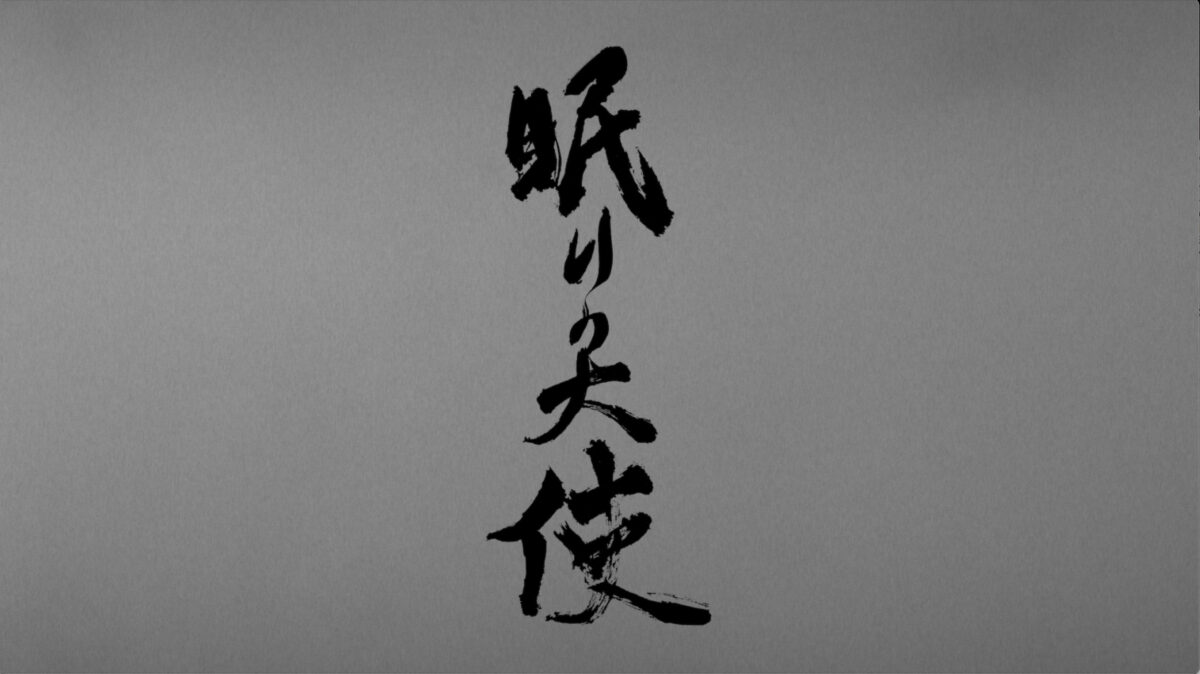 眠りの大使